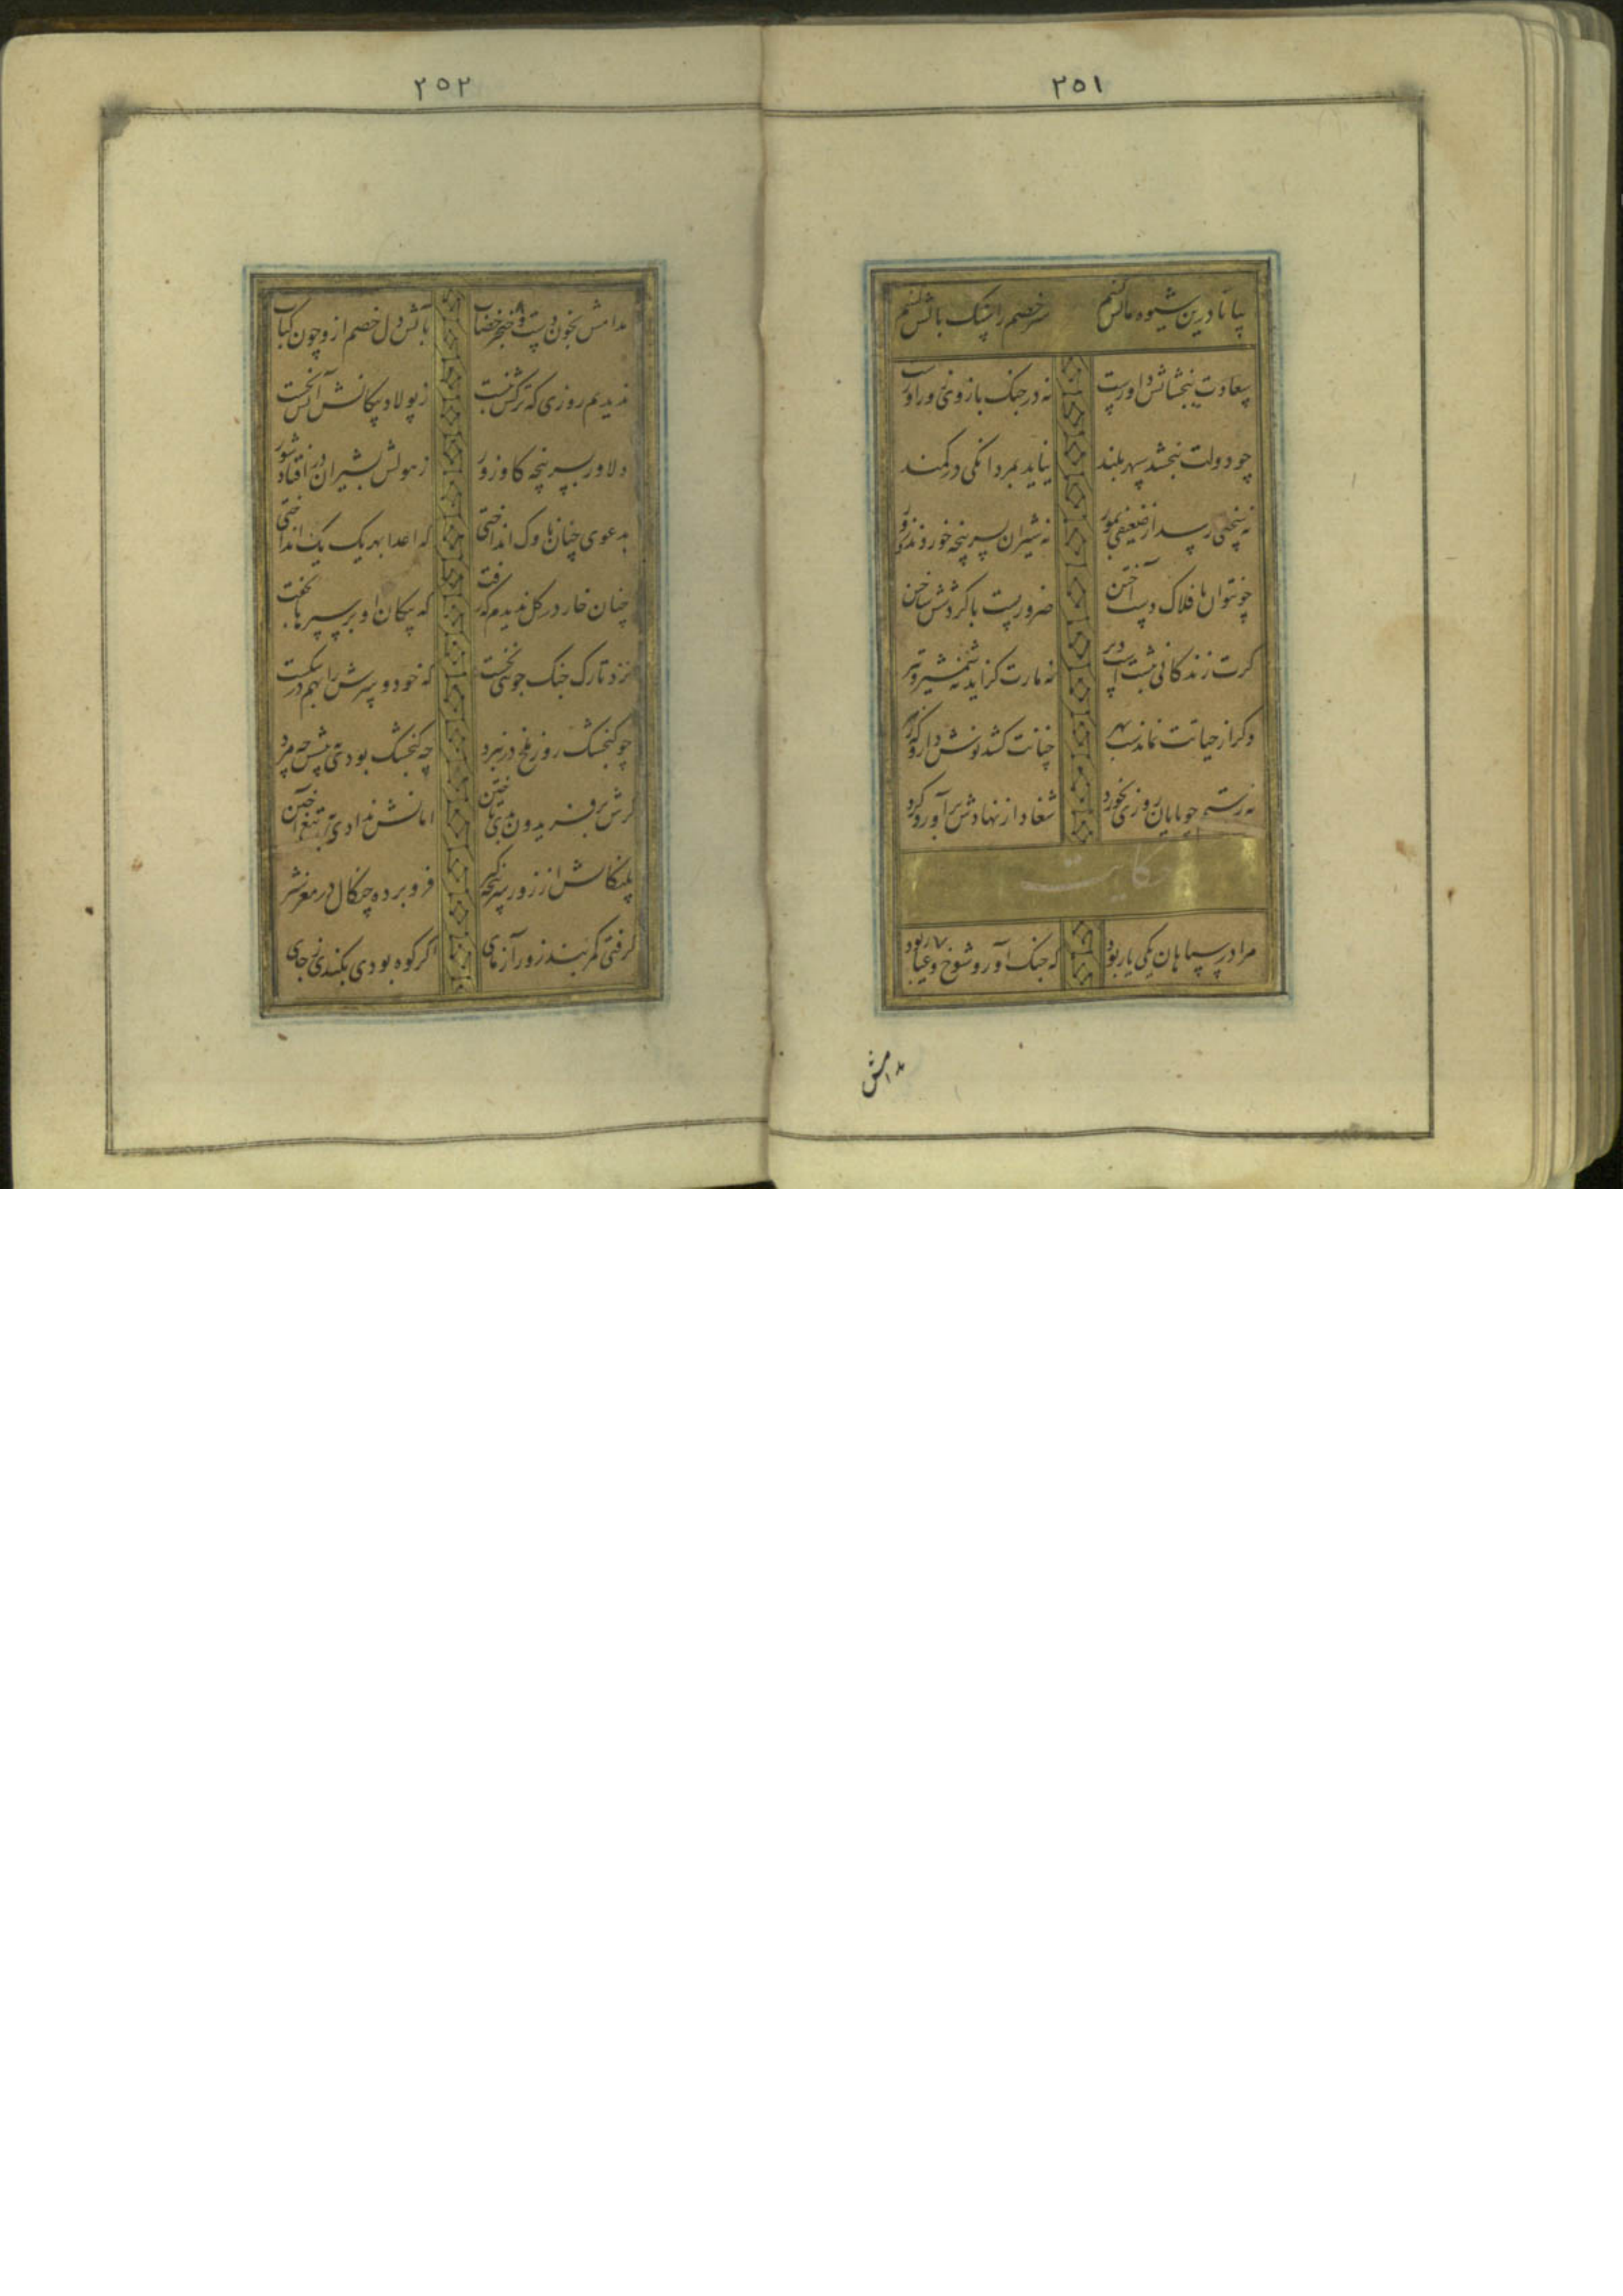 ۲۵۱
بیا تا درین شیوه چالش کنیم سر خصم را سنک بالش کنیم
سعادت ببخشایش داورست نه در جنک بازوی زورآورست
چو دولت نبخشد سپهر بلند نیاید بمردانکی در کمند
نه سختی رسد از ضعیفی بمور نه شیران بسرپنجه خوردند و زور
چو نتوان بافلاک دست آختن ضروریست با کردشش ساختن
کرت زندکانی نبشتست دیر نه مارت کزاید نه شمشیر و تیر
وکر از حیاتت نماندست بهر چنانت کشد نوش دارو که زهر
نه رستم چو پایان روزی بخورد شغاد از نهادش برآورد کرد
حکایت
مرا در سپاهان یکی یار بود که جنک آور و شوخ و عیار بود
مدامش
۲۵۲
مدامش بخون دست و خنجر خضاب بآتش دل خصم ازو چون کباب
ندیدم روزی که ترکش نبست ز پولاد پیکانش آتش نجست
دلاور بسرپنجه کاوزور ز هولش بشیران در افتاد شور
بدعوی چنان ناوک انداختی که اعدا بهر یک یک انداختی
چنان خار در کل ندیدم که رفت که پیکان او بر سپرها بخفت
نزد تارک جنک جوئی نخست که خود و سرش را بهم در شکست
چو کنجشک روز ملخ در نبرد چه کنجشک بودی پیشش چه مرد
کرش بر فریدون بدی تاختن امانش ندادی بتیغ آختن
پلنکانش از زور سرپنجه زیر فرو برده چنکال در مغز شیر
کرفتی کمربند زورآزمای اکر کوه بودی بکندی ز جای